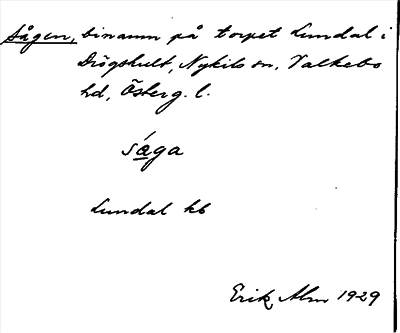 Sågen, binamn på torpet Lundal i
Drögshult, Nykils sn, Valkebo
hd, Österg. l.
såga
Lundal kb
Erik Alm 1929